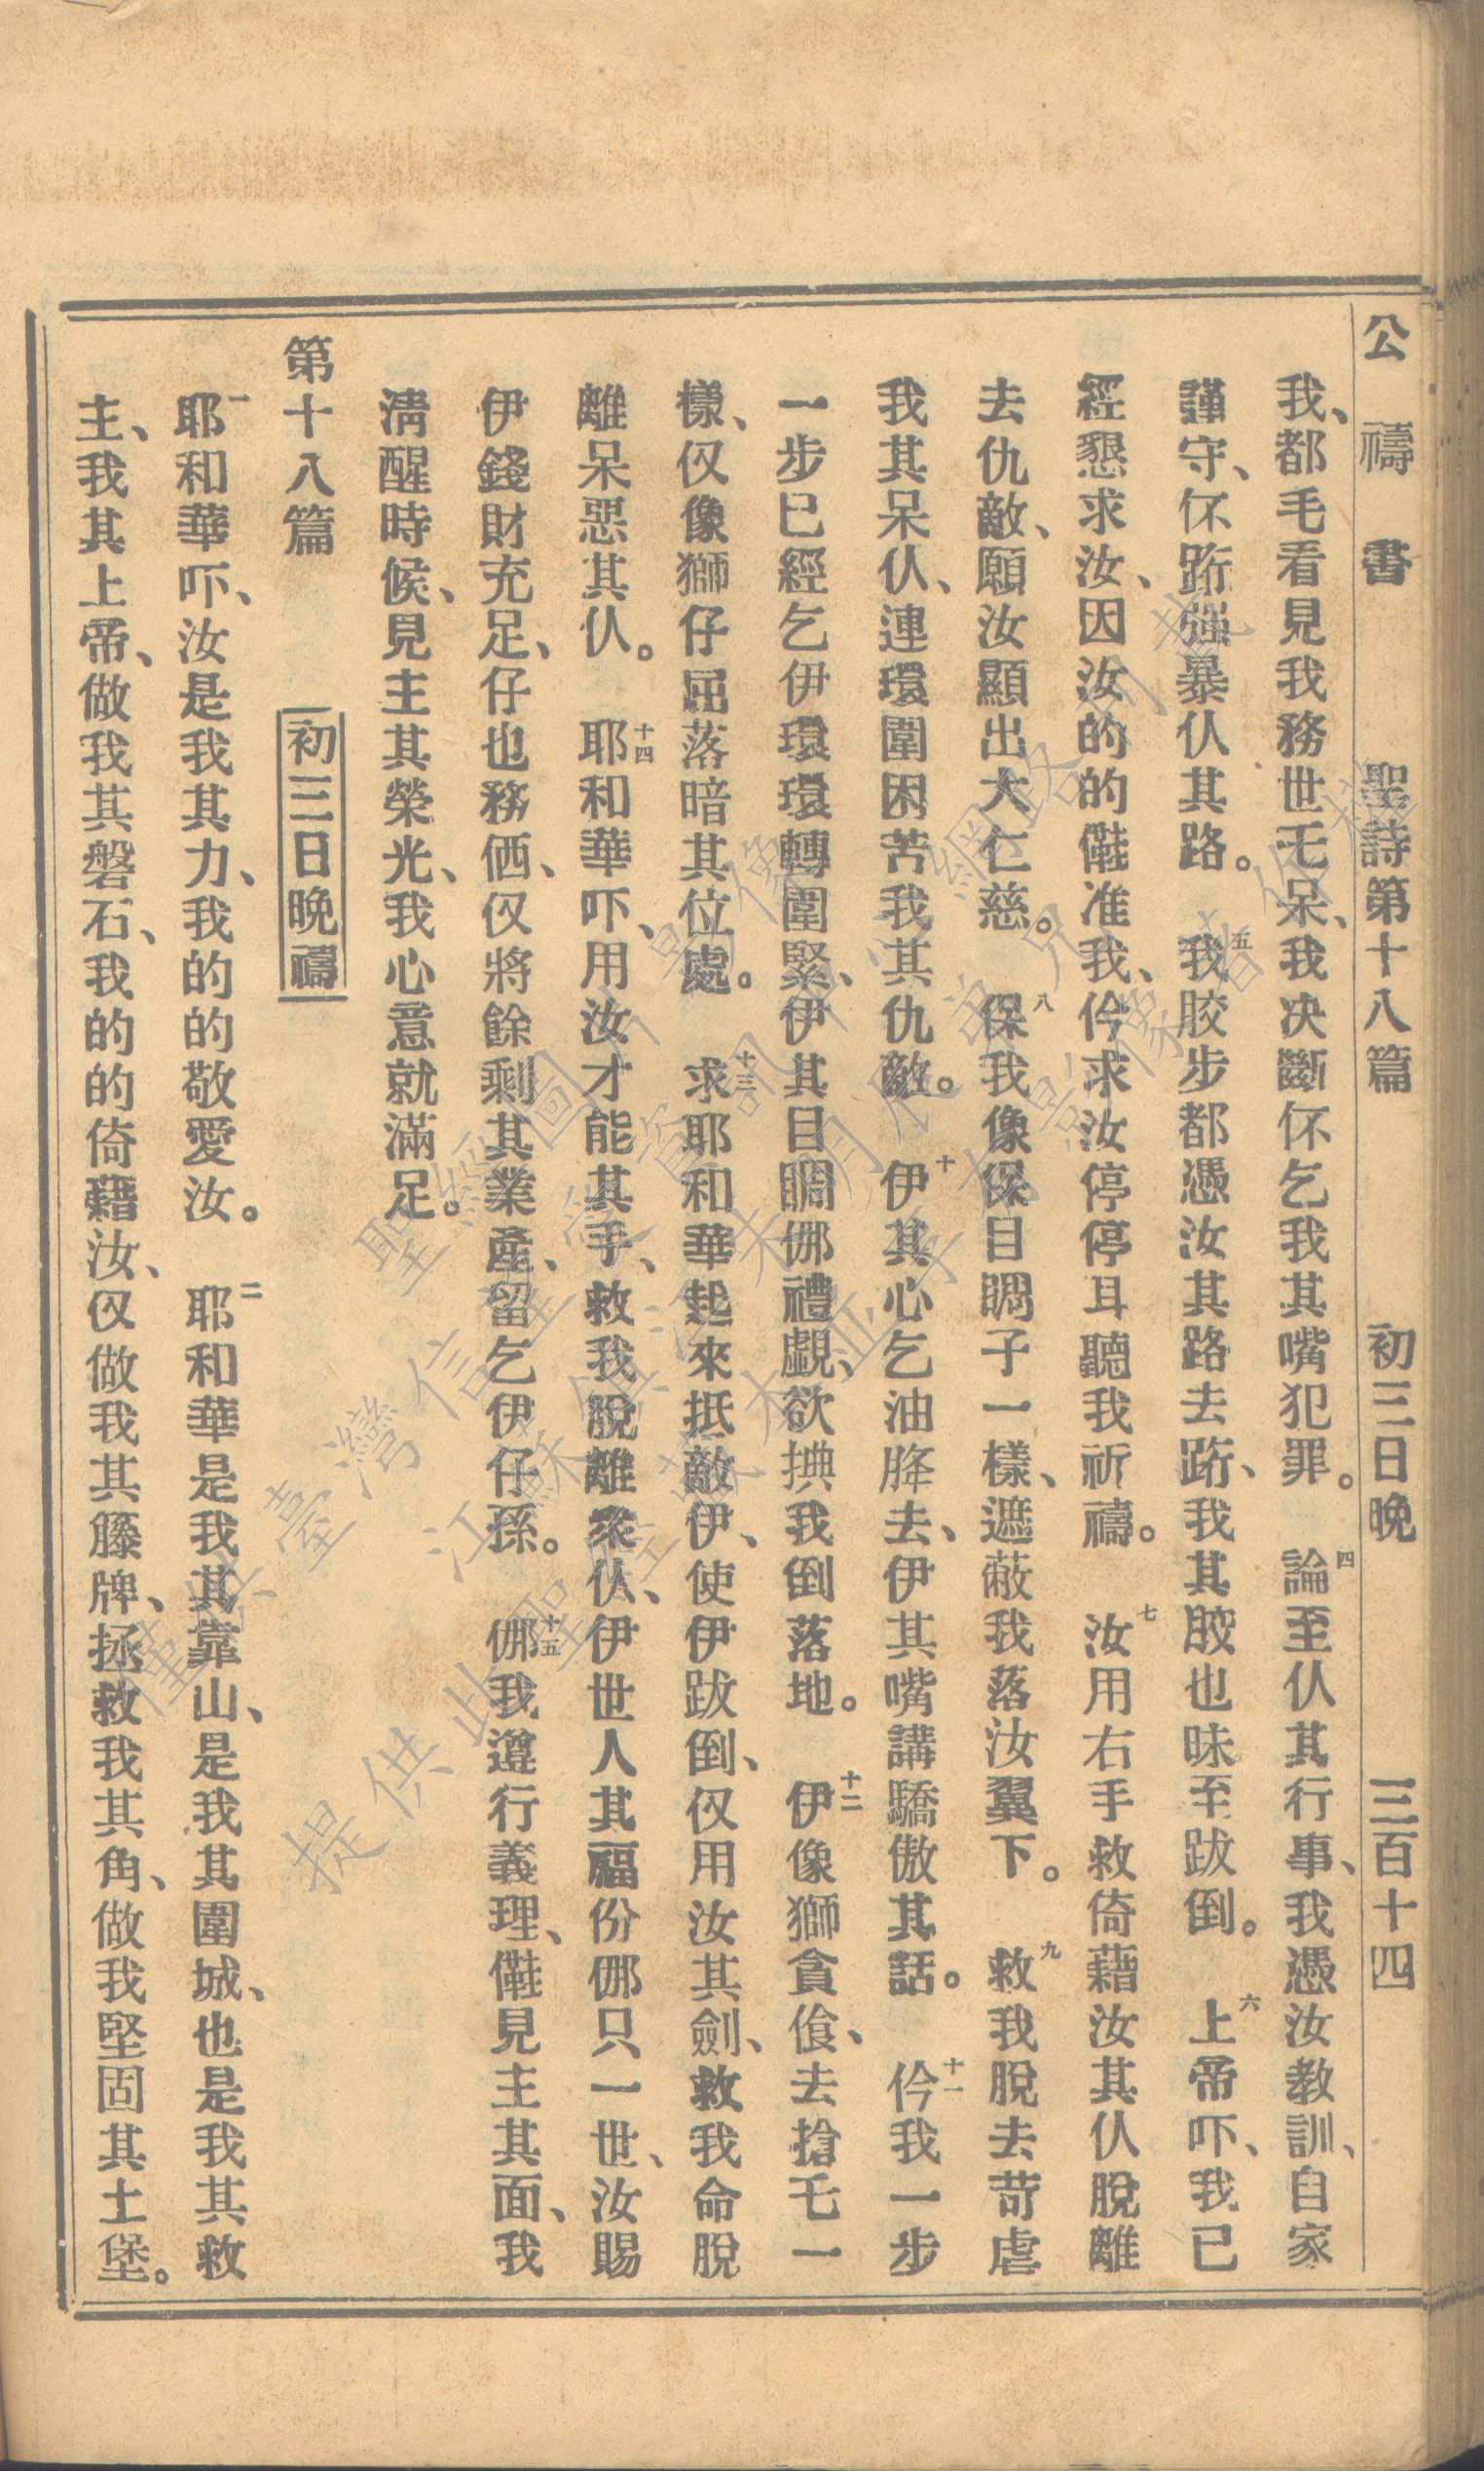 公禱書 聖詩第十八篇 初三日晚 三百十四
我、都毛看見我務世乇呆、我决斷伓乞我其嘴犯罪。四論至仈其行事、我憑汝教訓、自家
謹守、伓跡强暴仈其路。五我胶步都憑汝其路去跡、我其胶也昧至跋倒。六上帝吓、我已
經懇求汝、因汝的的儺准我、仱求汝停停耳聽我祈禱。七汝用右手救倚藉汝其仈脫離
去仇敵、願汝顯出大仁慈。八保我像保目睭子一樣、遮蔽我落汝翼下。九救我脫去苛虐
我其呆仈、連環圍困苦我其仇敵。十伊其心乞油膭去、伊其嘴講驕傲其話。十一仱我一步
一步已經乞伊環環轉圍緊、伊其目睭㑚禮覷、欲捵我倒落地。十二伊像獅貪飡、去搶乇一
樣、仅像獅仔屈落暗其位處。十三求耶和華起來抵敵伊、使伊跋倒、仅用汝其劍、救我命脫
離呆惡其仈。十四耶和華吓、用汝才能其手、救我脫離衆仈、伊世人其福份㑚只一世、汝賜
伊錢財充足、仔也務㑷、仅將餘剩其業產、留乞伊仔孫。十五㑚我遵行義理、儺見主其面、我
淸醒時候、見主其榮光、我心意就滿足。
第十八篇 初三日晚禱
一耶和華吓、汝是我其力、我的的敬愛汝。二耶和華是我其靠山、是我其圍城、也是我其救
主、我其上帝、做我其磐石、我的的倚藉汝、仅做我其籐牌、拯救我其角、做我堅固其土堡。